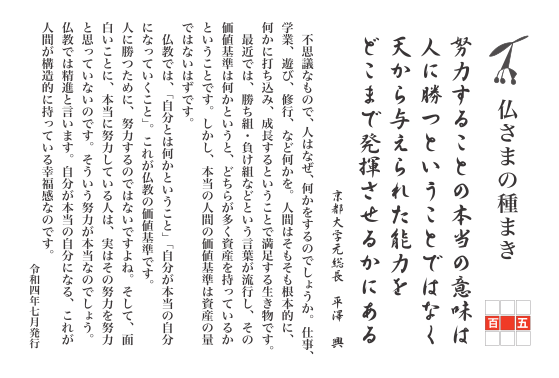 仏さまの種まき
百五
努力することの本当の意味は
人に勝つということではなく
天から与えられた能力を
どこまで発揮させるかにある
京都大学元総長　平澤　興
不思議なもので、人はなぜ、何かをするのでしょうか。仕事、
学業、遊び、修行、など何かを。人間はそもそも根本的に、
何かに打ち込み、成長するということで満足する生き物です。
最近では、勝ち組・負け組などという言葉が流行し、その
価値基準は何かというと、どちらが多く資産を持っているか
ということです。しかし、本当の人間の価値基準は資産の量
ではないはずです。
仏教では、「自分とは何かということ」「自分が本当の自分
になっていくこと」。これが仏教の価値基準です。
人に勝つために、努力するのではないですよね。そして、面
白いことに、本当に努力している人は、実はその努力を努力
と思っていないのです。そういう努力が本当なのでしょう。
仏教では精進と言います。自分が本当の自分になる、これが
人間が構造的に持っている幸福感なのです。
令和四年七月発行